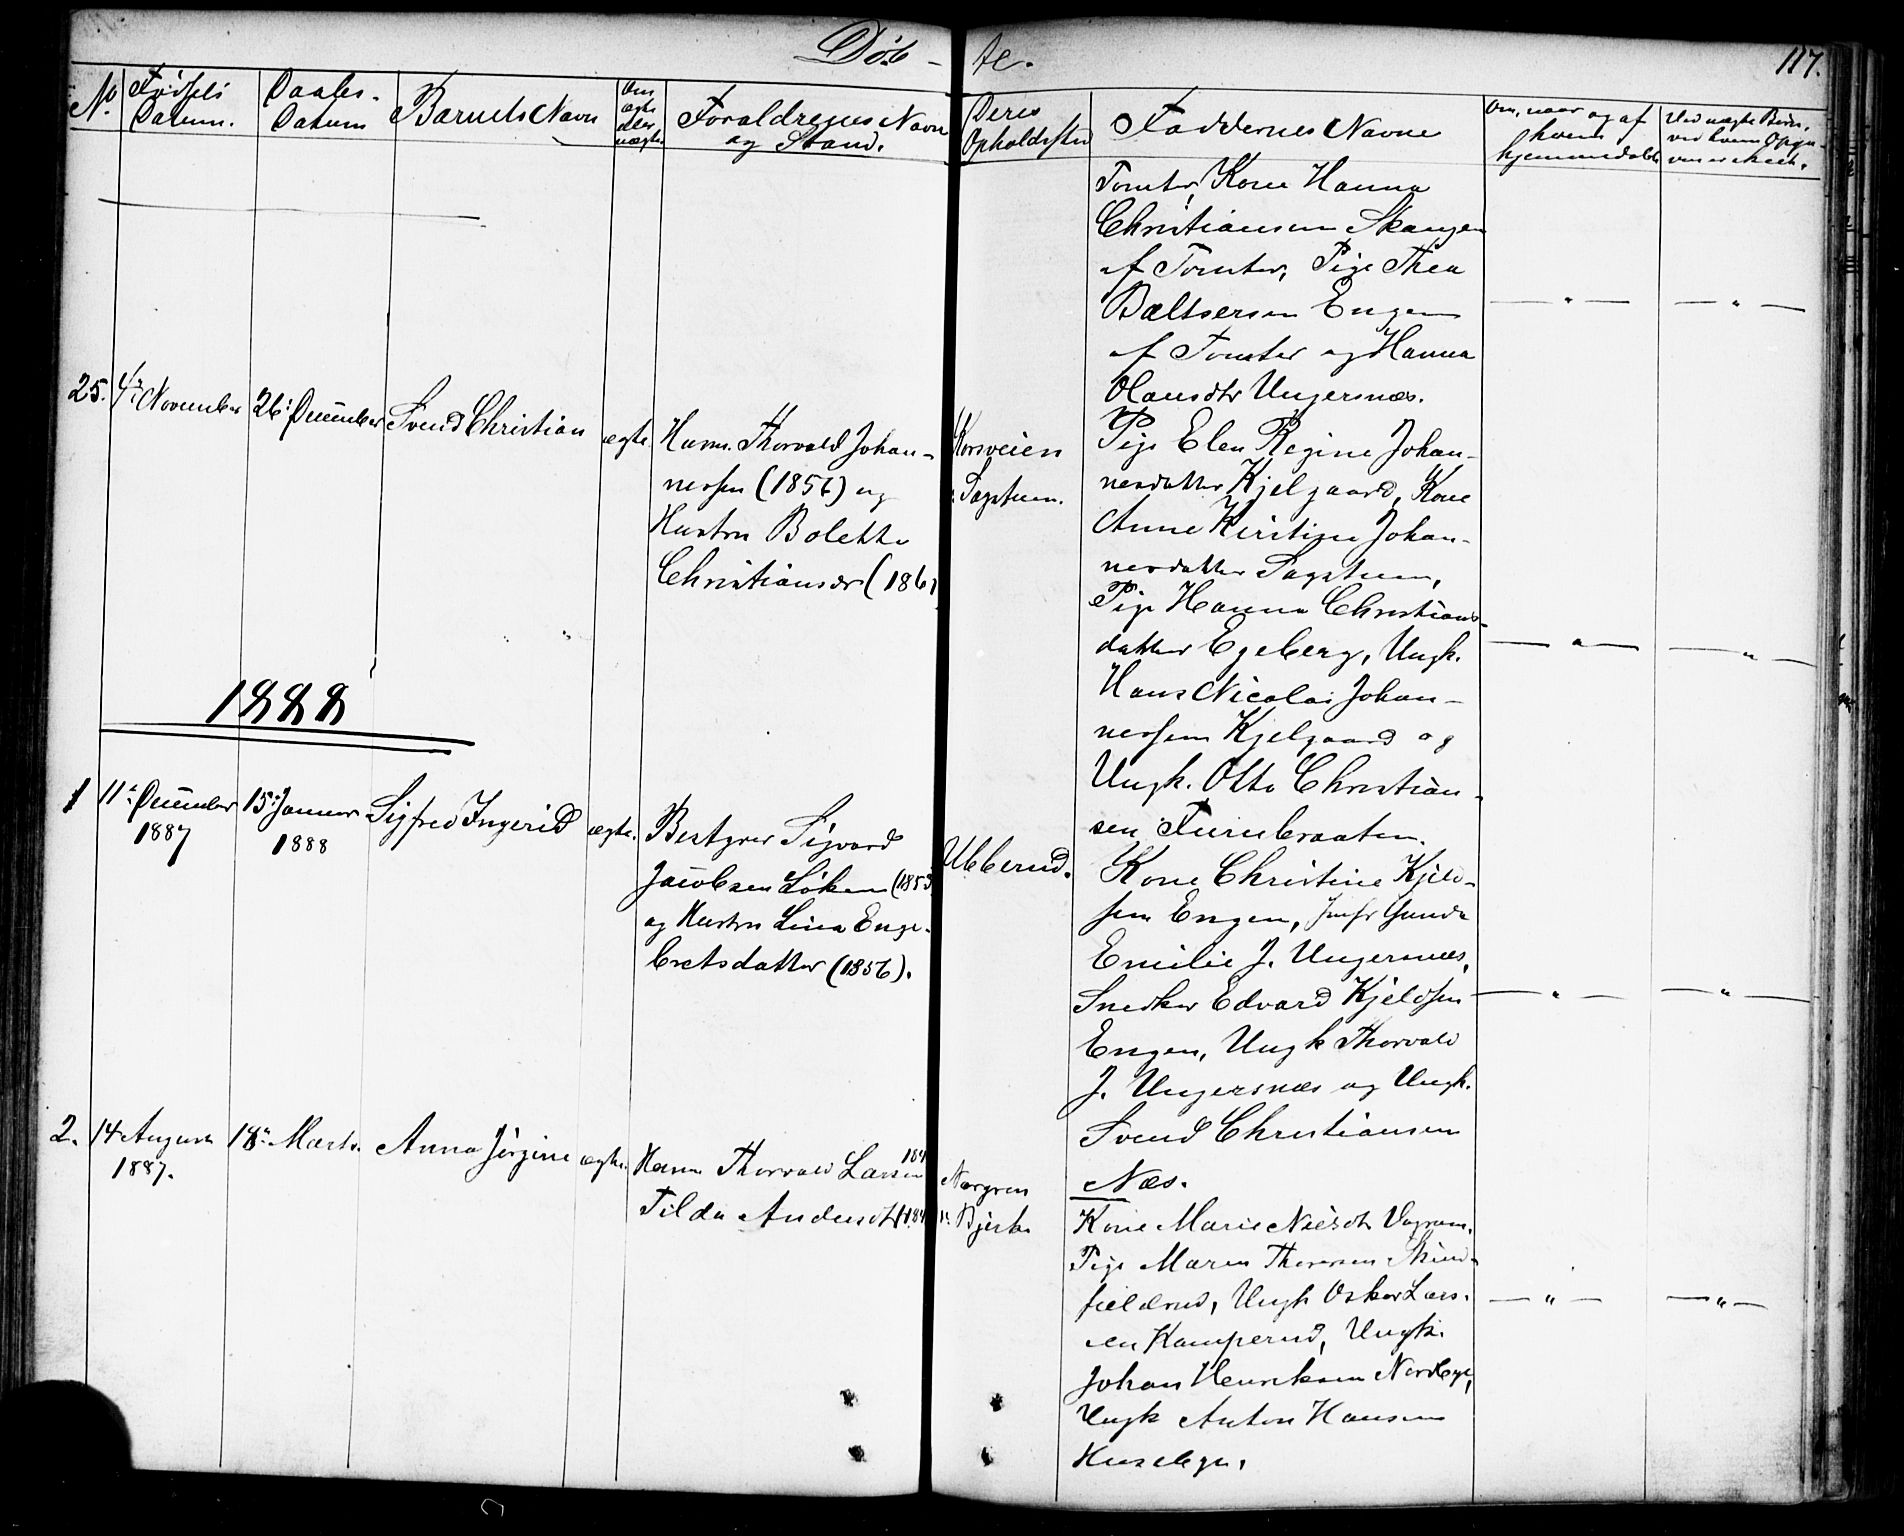 Døb - te.
117.
No
Fødsels Datum.
Daabs- Datum
Barnets Navn
Om ægte eller uægte
Forældrenes Navn og Stand.
Deres Opholdssted
Faddernes Navne
Om, naar og af hvem hjemmedøbt
Ved uægte Børn,
Tomter, Kone Hanna
Christiansen Skaugen
af Tomter, Pige Thea
Baltsersen Engen
af Tomter og Hanna
Olausdtr Ungersnæs.
25.
4de November
26: December
Svend Christian
ægte.
Husm. Thorvald Johan-
nessen (1856) og
Hustru Bolette
Christiansdr (186
Korsveien
Sagstuen.
Pige Elen Regine Johan-
nesdatter Kjelgaard, Kone
Anne Kirstine Johan-
nesdatter Sagstuen,
Pige Hanna Christians-
datter Egeberg, Ungk.
Hans Nicolai Johan-
nessen Kjelgaard og
Ungk. Otto Christian-
sen Furubraaten.
1888
1
11te December
1887
15: Januar
1888
Sigfred Ingerid
ægte.
Bestyrer Sigvard
Jacobsen Løken (1853
og Hustru Lina Enge-
bretsdatter (1856).
Ubberud.
Kone Christine Kjeld-
sen Engen, Jmfr Gunda
Emilie J. Ungersnæs,
Snedker Edvard Kjeldsen
Engen, Ungk Thorvald
J. Ungersnæs og Ungk.
Svend Christiansen
Næs.
2.
14 August
1887.
18de Marts.
Anna Jørgine
ægte.
Husm Thorvald Larsen 184
Tilda Andersdtr 184
Norgren
u: Bjerke
Kone Marie Nielsdtr
Pige Maren Thoresen
Ungk Oskar Lars-
en Kamperud, Ungk.
Johan Henriksen Nordbye,
Ungk Anton Hansen
Husebye.